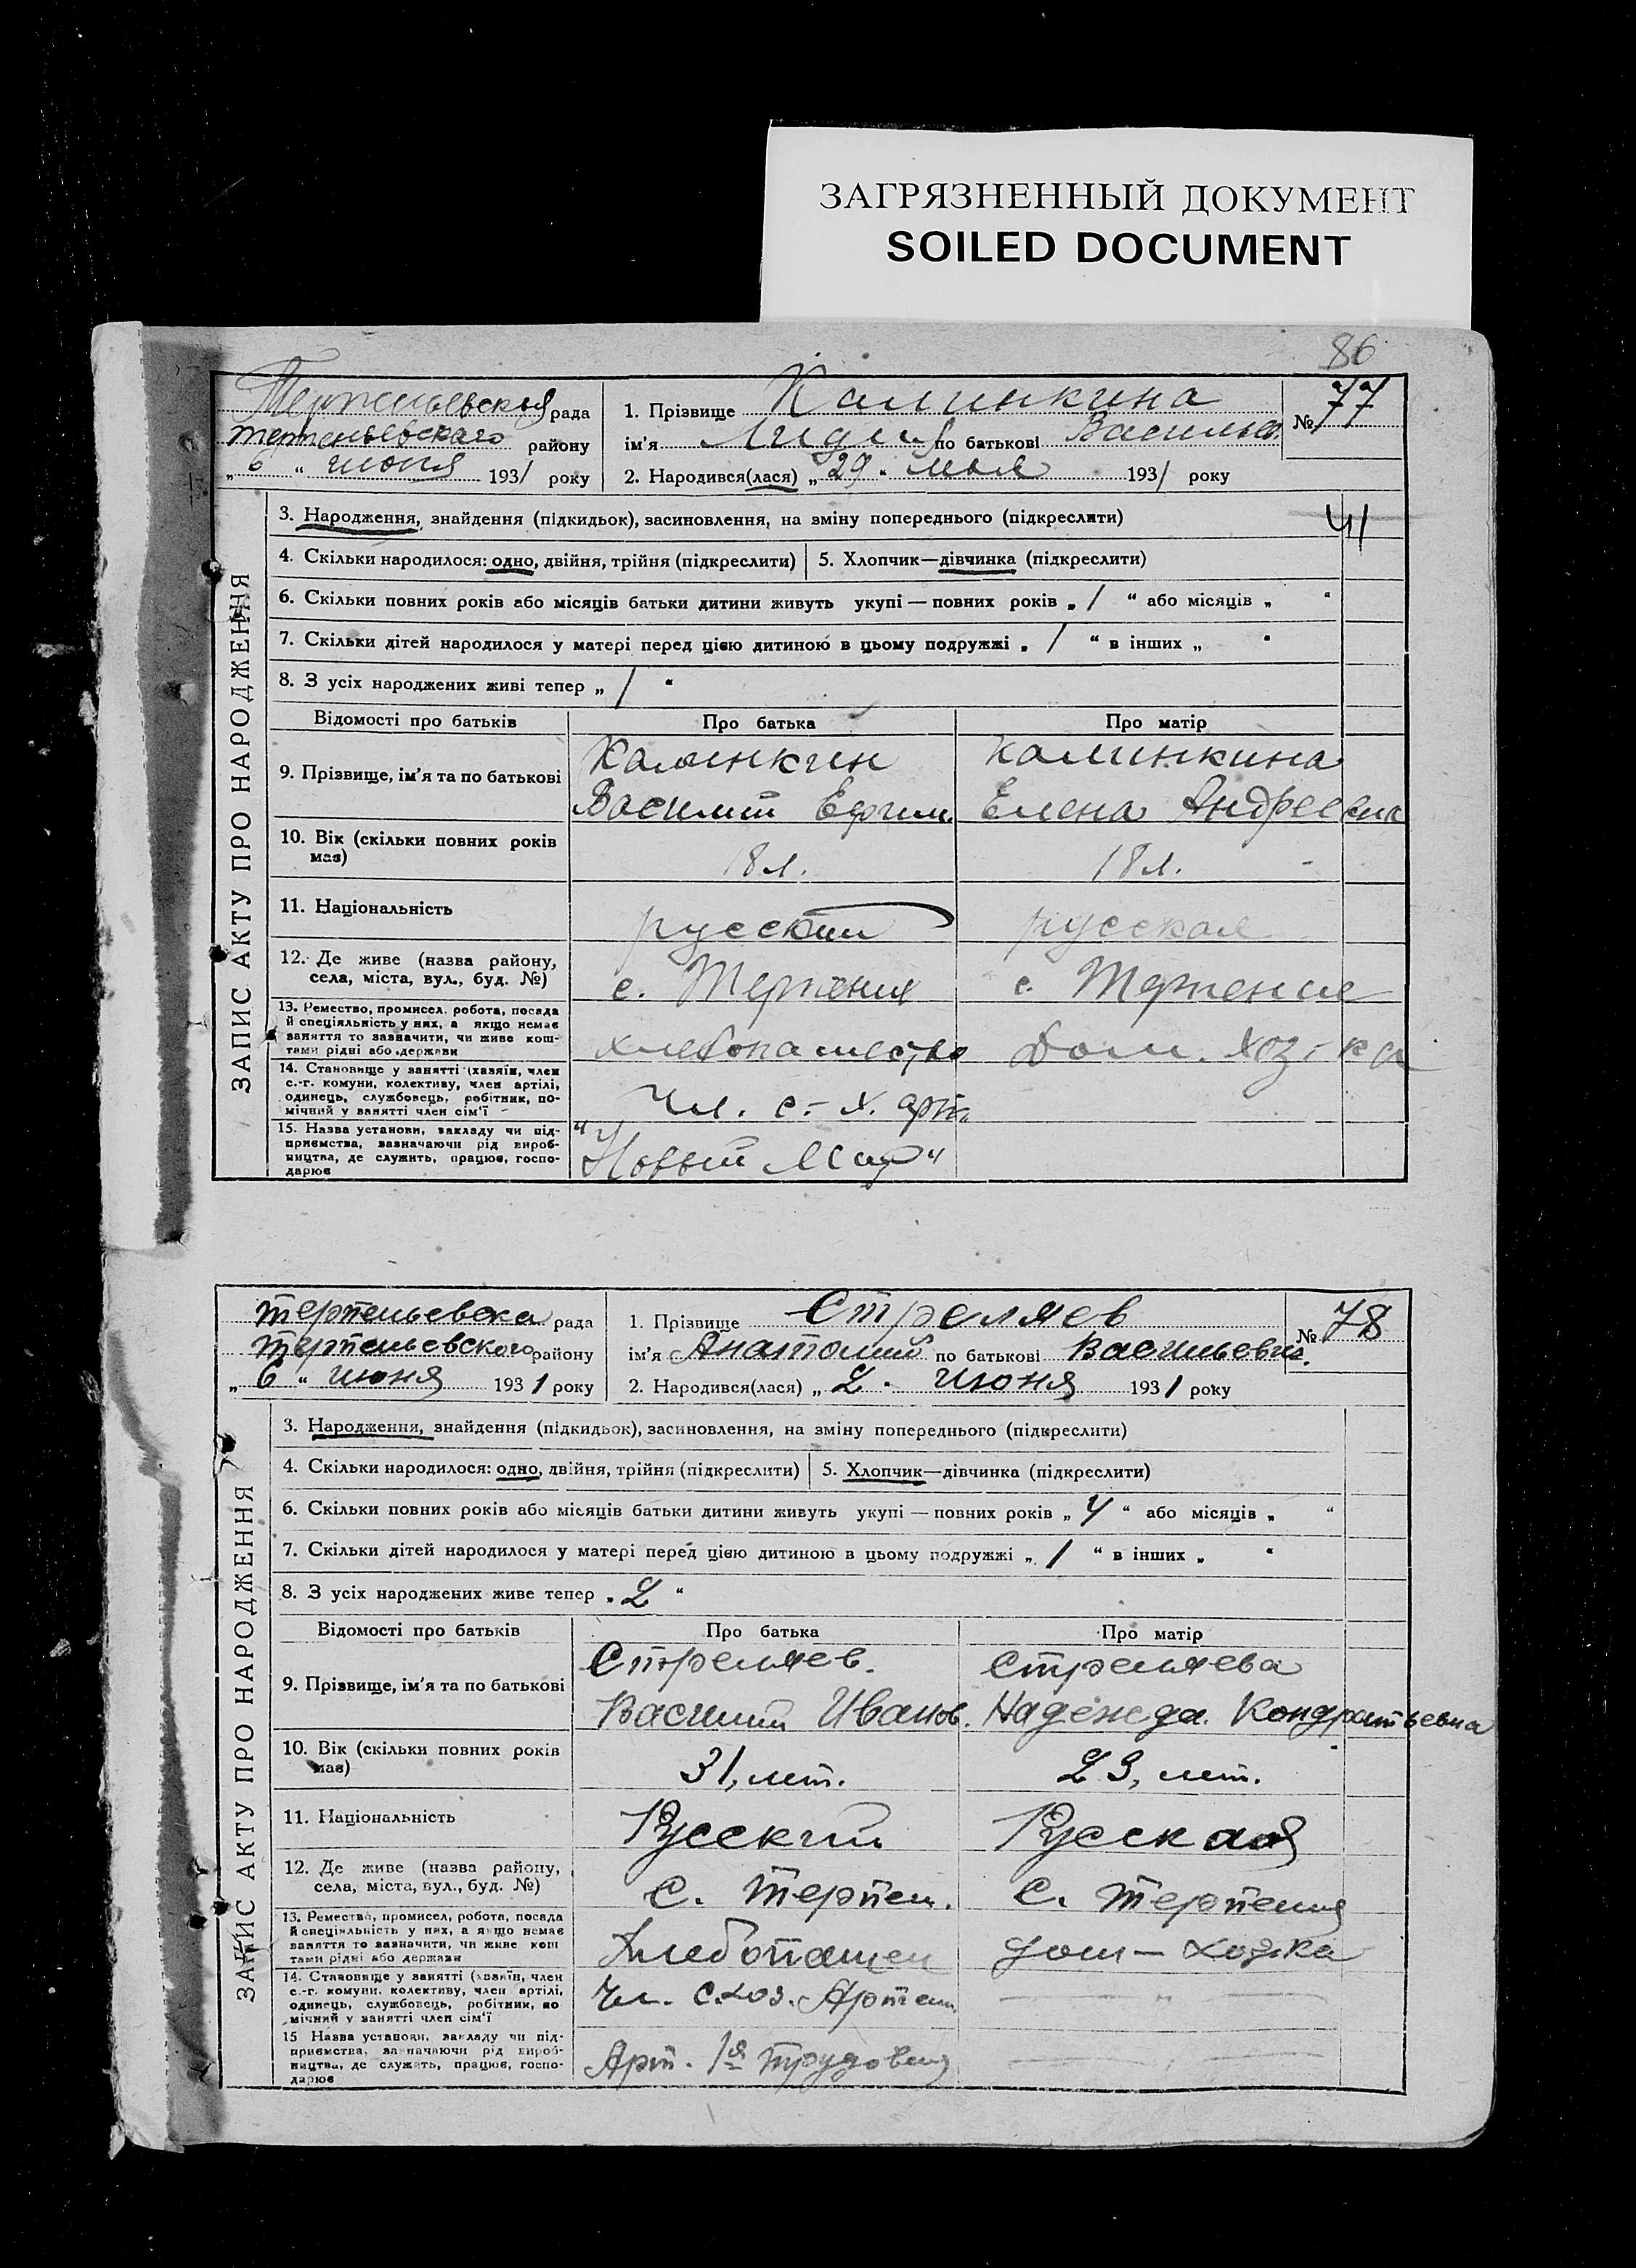 ЗАГРЯЗНЕННЫЙ ДОКУМЕНТ
SOILED DOCUMENT
86
Терпеньевская рада
Терпеньевского району
„ 6 “ июня 1931 року
1. Прізвище Калинкина
ім'я Лидия по батькові Василье.
2. Народився(лася) „ 29 “ мая 1931 року
№ 77
ЗАПИС АКТУ ПРО НАРОДЖЕННЯ
3. Народження, знайдення (підкидьок), засиновлення, на зміну попереднього (підкреслити)
4. Скільки народилося: одно, двійня, трійня (підкреслити) 5. Хлопчик—дівчинка (підкреслити)
6. Скільки повних років або місяців батьки дитини живуть укупі — повних років „ 1 “ або місяців „ “
7. Скільки дітей народилося у матері перед цією дитиною в цьому подружжі „ 1 “ в інших „ “
8. З усіх народжених живі тепер „ 1 “
Відомості про батьків Про батька Про матір
9. Прізвище, ім'я та по батькові
Калинкин Калинкина
Василий Ефим. Елена Андреевна
10. Вік (скільки повних років
має)
18 л. 18 л.
11. Національність русский русская
12. Де живе (назва району,
села, міста, вул., буд. №)
с. Терпения с. Терпение
13. Ремество, промисел, робота, посада
й спеціяльність у них, а якщо немає
заняття то зазначити, чи живе кош-
тами рідні або держави
хлебопашество Дом. хоз-ка
14. Становище у занятті (хазяїн, член
с.-г. комуни, колективу, член артілі,
одинець, службовець, робітник, по-
мічний у занятті член сім'ї
Чл. с.-х. арт.
15. Назва установи, закладу чи під-
приємства, зазначаючи рід вироб-
ництва, де служить, працює, госпо-
дарює
„Новый Мир“
Терпеньевска рада
Терпеньевского району
„ 6 “ июня 1931 року
1. Прізвище Стреляев
ім'я Анатолий по батькові Васильевич.
2. Народився(лася) „ 2 “ Июня 1931 року
№ 78
ЗАПИС АКТУ ПРО НАРОДЖЕННЯ
3. Народження, знайдення (підкидьок), засиновлення, на зміну попереднього (підкреслити)
4. Скільки народилося: одно, двійня, трійня (підкреслити) 5. Хлопчик—дівчинка (підкреслити)
6. Скільки повних років або місяців батьки дитини живуть укупі — повних років „ 4 “ або місяців „ “
7. Скільки дітей народилося у матері перед цією дитиною в цьому подружжі „ 1 “ в інших „ “
8. З усіх народжених живе тепер „ 2 “
Відомості про батьків Про батька Про матір
9. Прізвище, ім'я та по батькові
Стреляев. Стреляева
Василий Иванов. Надежда Кондратьевна
10. Вік (скільки повних років
має)
31, лет. 23, лет.
11. Національність Русский Русская
12. Де живе (назва району,
села, міста, вул., буд. №)
С. Терпен. С. Терпения
13. Ремество, промисел, робота, посада
й спеціяльність у них, а якщо немає
заняття то зазначити, чи живе кош
тами рідні або держави
Хлебопашец дом — хозяка
14. Становище у занятті (хазяїн, член
с.-г. комуни, колективу, член артілі,
одинець, службовець, робітник, по
мічний у занятті член сім'ї
Чл. с.хоз. Артели
15 Назва установи, закладу чи під-
приємства, зазначаючи рід вироб-
ництва, де служить, працює, госпо-
дарює
Арт. 1я трудовая